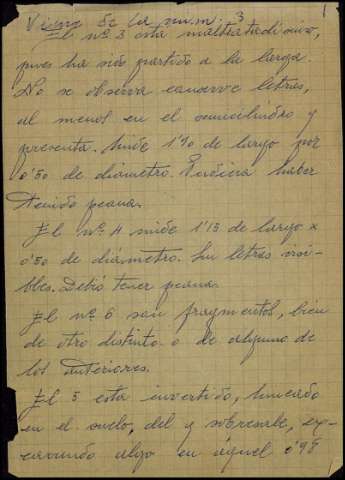 Viene de la num. 3
El nº 3 está maltratadisimo,
pues ha sido partido a lo largo.
No se observa conserve letras,
al menos en el semicilindro y
presenta. Mide 1'70 de largo por
0'50 de diámetro. Pudiera haber
tenido peana.
El nº 4 mide 1'15 de largo x
0'50 de diámetro. Sin letras visi-
bles. Debió tener peana.
El nº 6 son fragmentos, bien
de otro distinto o de alguno de
los anteriores.
El 5 está invertido, hincado
en el suelo, del y sobresale, ex-
cavando algo en aquel 0'98